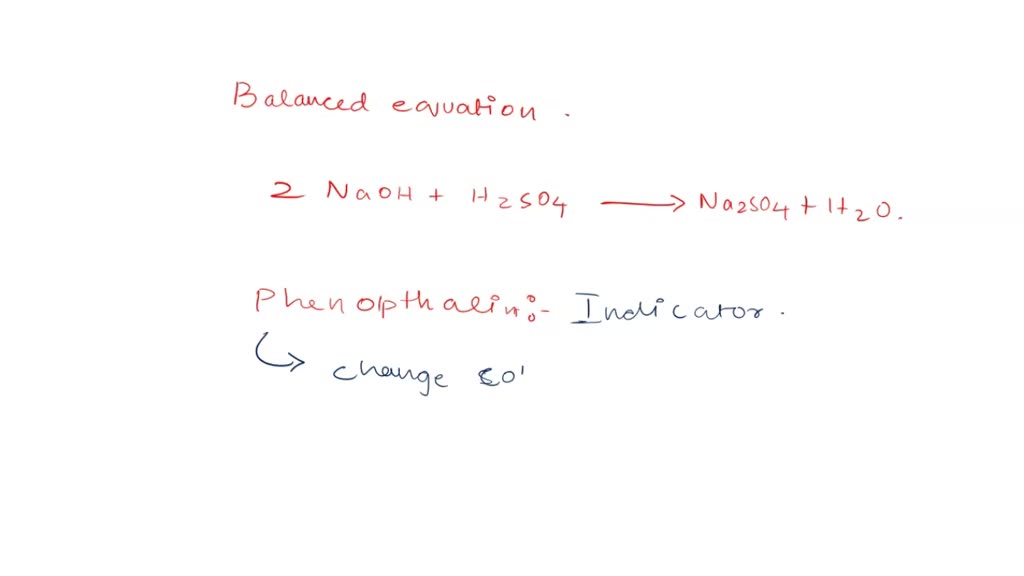 Balanced equation.
2 NaOH + H2SO4 → Na2SO4 + H2O.
Phenolpthalin:- Indicator.
↳ change